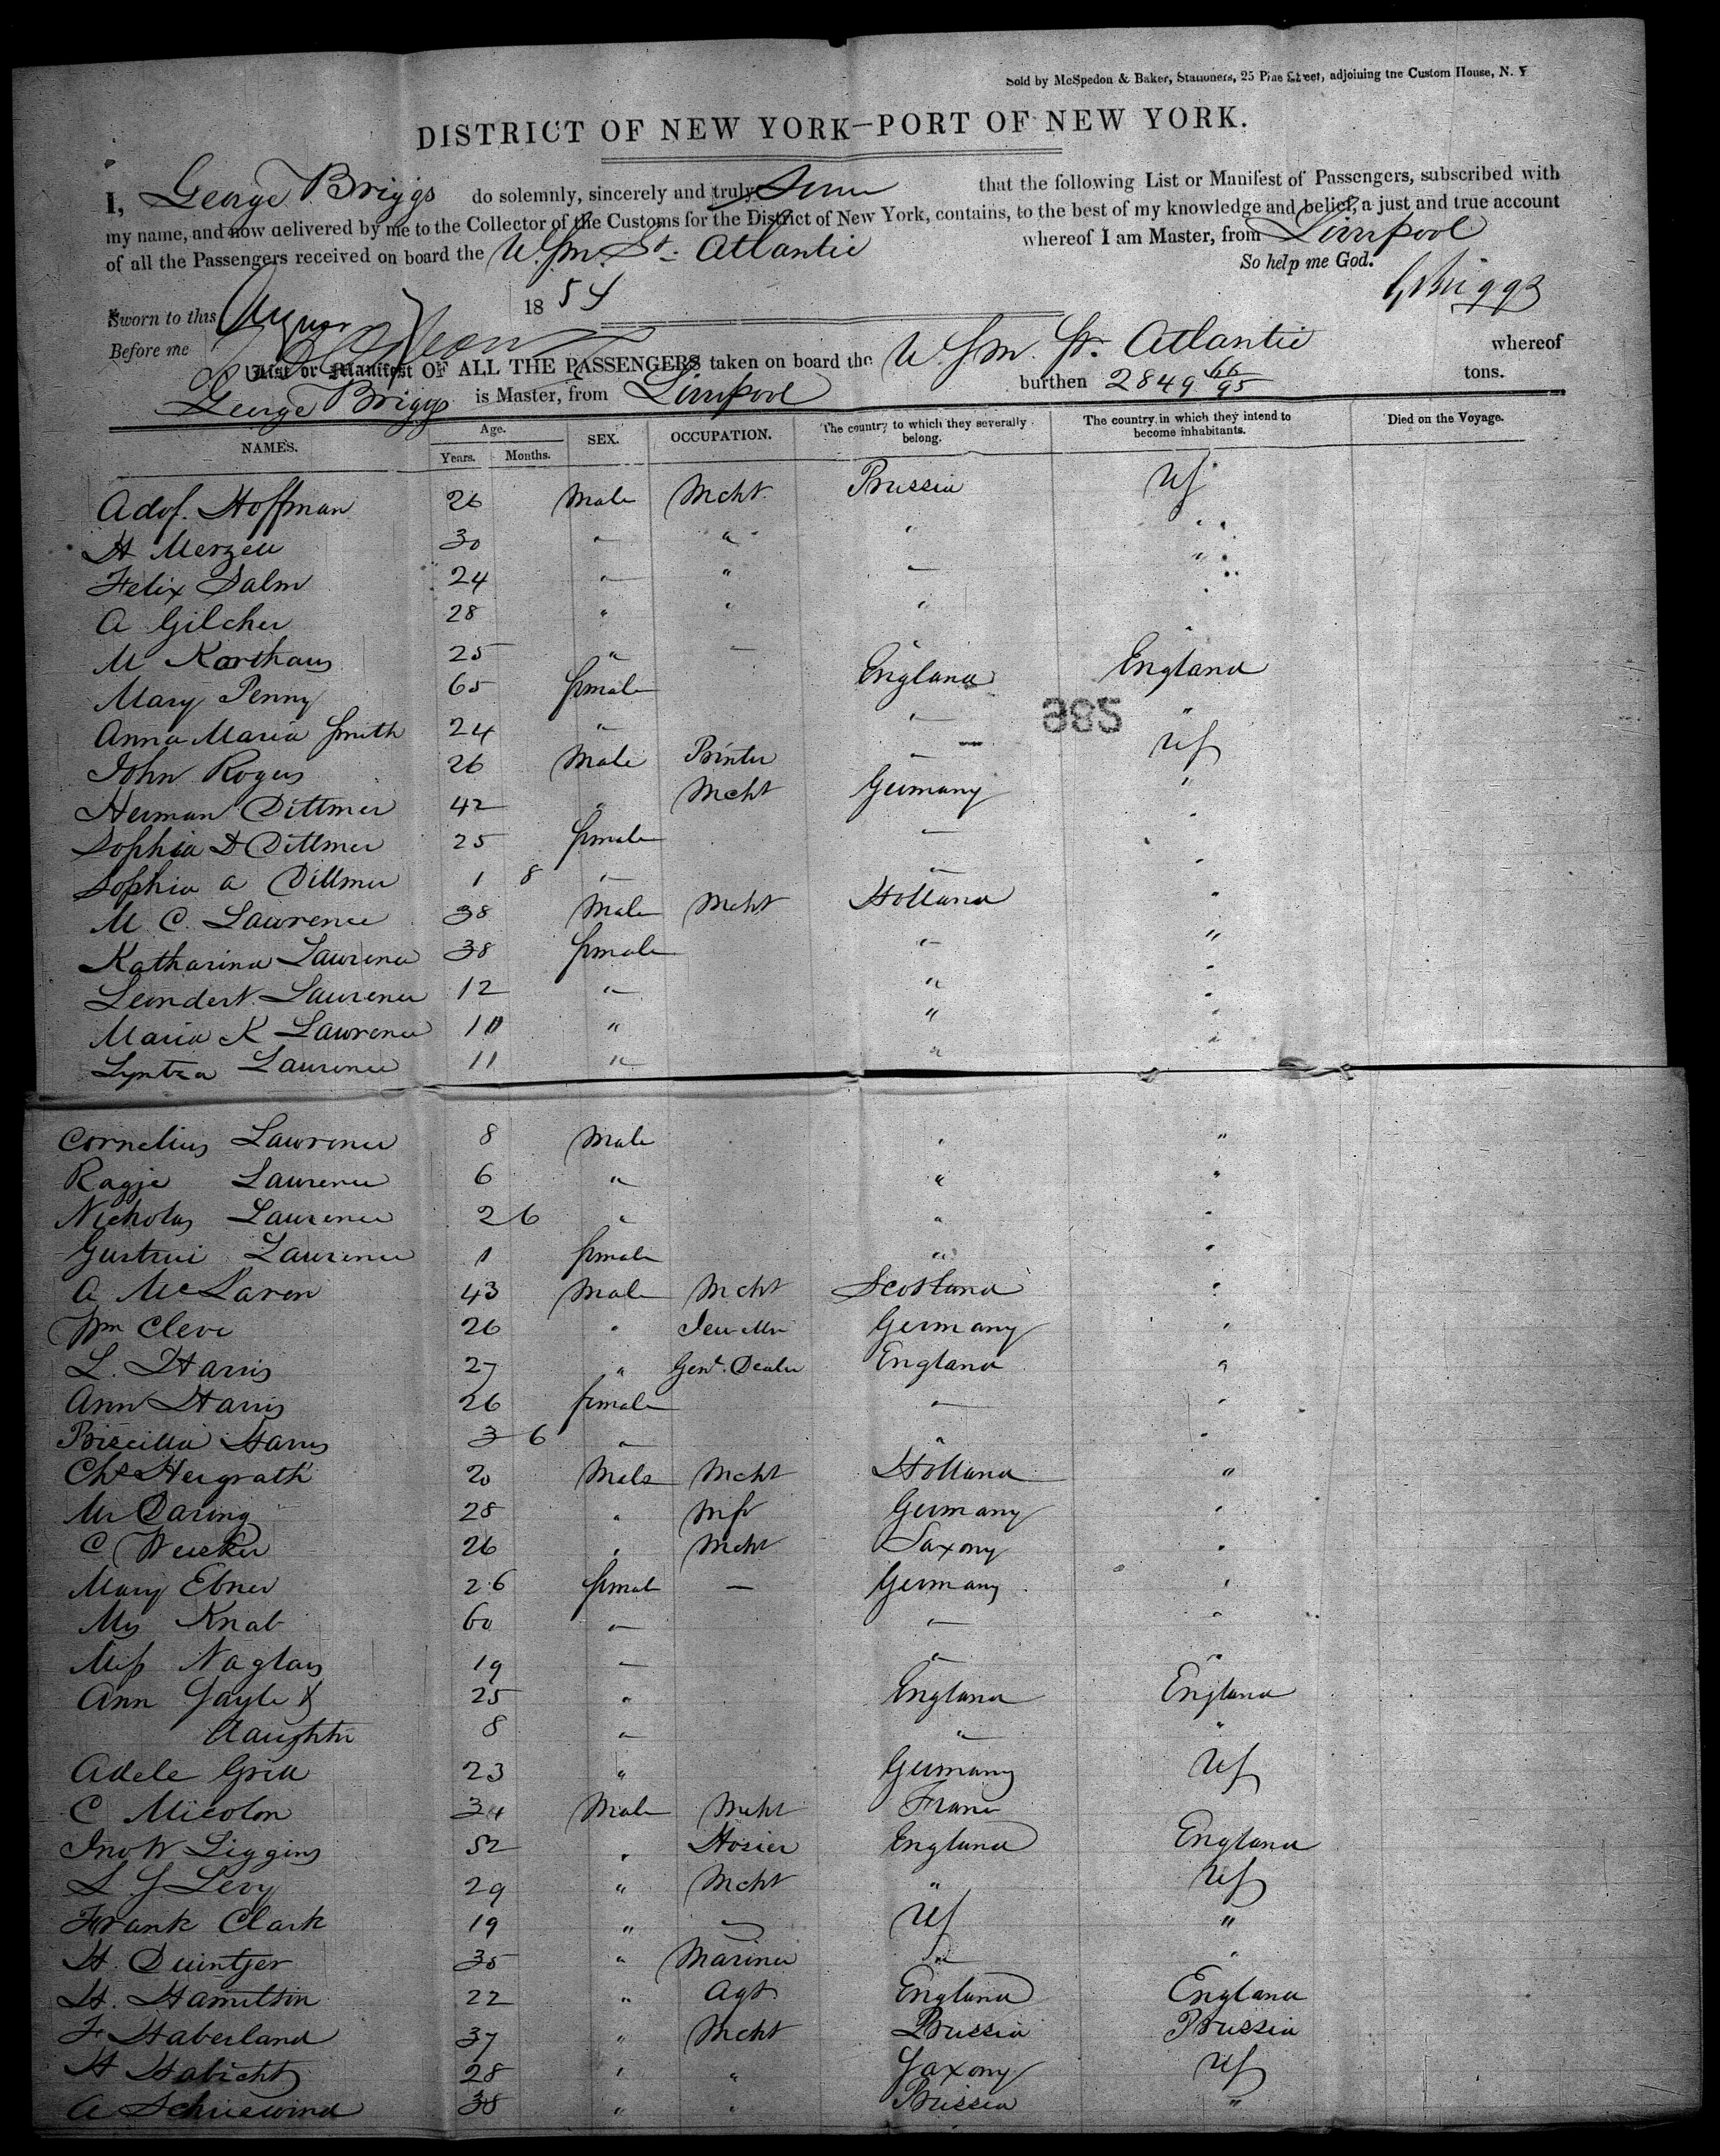 Sold by McSpedon & Baker, Stationers, 25 Pine Street, adjoining the Custom House, N. Y
DISTRICT OF NEW YORK—PORT OF NEW YORK.
I, George Briggs do solemnly, sincerely and truly that the following List or Manifest of Passengers, subscribed with
my name, and now delivered by me to the Collector of the Customs for the District of New York, contains, to the best of my knowledge and belief, a just and true account
of all the Passengers received on board the U.S.M. St. Atlantic whereof I am Master, from Liverpool
So help me God.
Sworn to this 1854 G Briggs
Before me
List or Manifest OF ALL THE PASSENGERS taken on board the U.S.M. St. Atlantic whereof
George Briggs is Master, from Liverpool burthen 2849 66/95 tons.
NAMES. Age. Years. Months. SEX. OCCUPATION. The country to which they severally belong. The country in which they intend to become inhabitants. Died on the Voyage.
Adof. Hoffman 26 Male Mcht Prussia US
H Merzell 30 " " " "
Felix Salm 24 " " " "
A Gilcher 28 " " " "
M Korthaus 25 " " "
Mary Penny 65 female England England
Anna Maria Smith 24 " " "
382
John Rogers 26 Male Printer " US
Herman Dittmer 42 " Mcht Germany "
Sophia D Dittmer 25 female " "
Sophia A Dittmer 1 8 " " "
M C. Lawrence 38 Male Mcht Holland "
Katharina Lawrence 38 female " "
Leendert Lawrence 12 " " "
Maria K Lawrence 10 " " "
Lyntza Lawrence 11 " " "
Cornelius Lawrence 8 Male " "
Ragje Lawrence 6 " " "
Nicholas Lawrence 2 6 " " "
Lawrence 1 female " "
A McLaren 43 Male Mcht Scotland "
Wm Cleve 26 " Jeweller Germany "
L. Harris 27 " Genl. Dealer England "
Ann Harris 26 female " "
Priscilla Harris 3 6 " " "
Chs Hergrath 20 Male Mcht Holland "
Mr Daring 28 " Mfr Germany "
C Weisker 26 " Mcht Saxony "
Mary Ebner 26 female — Germany "
Mrs Knab 60 " " "
Miss Naglas 19 " " "
Ann Gayle & 25 " England England
daughter 8 " " "
Adele Grill 23 " Germany US
C Micolon 34 Male Mcht France
Jno W Liggins 52 " Hosier England England
L J Levy 29 " Mcht " US
Frank Clark 19 " — US "
H. Duintjer 35 " Mariner " "
H. Hamilton 22 " Agt. England England
F Haberland 37 " Mcht Prussia Prussia
H Habicht 28 " " Saxony US
A Schniewind 38 " " Prussia "